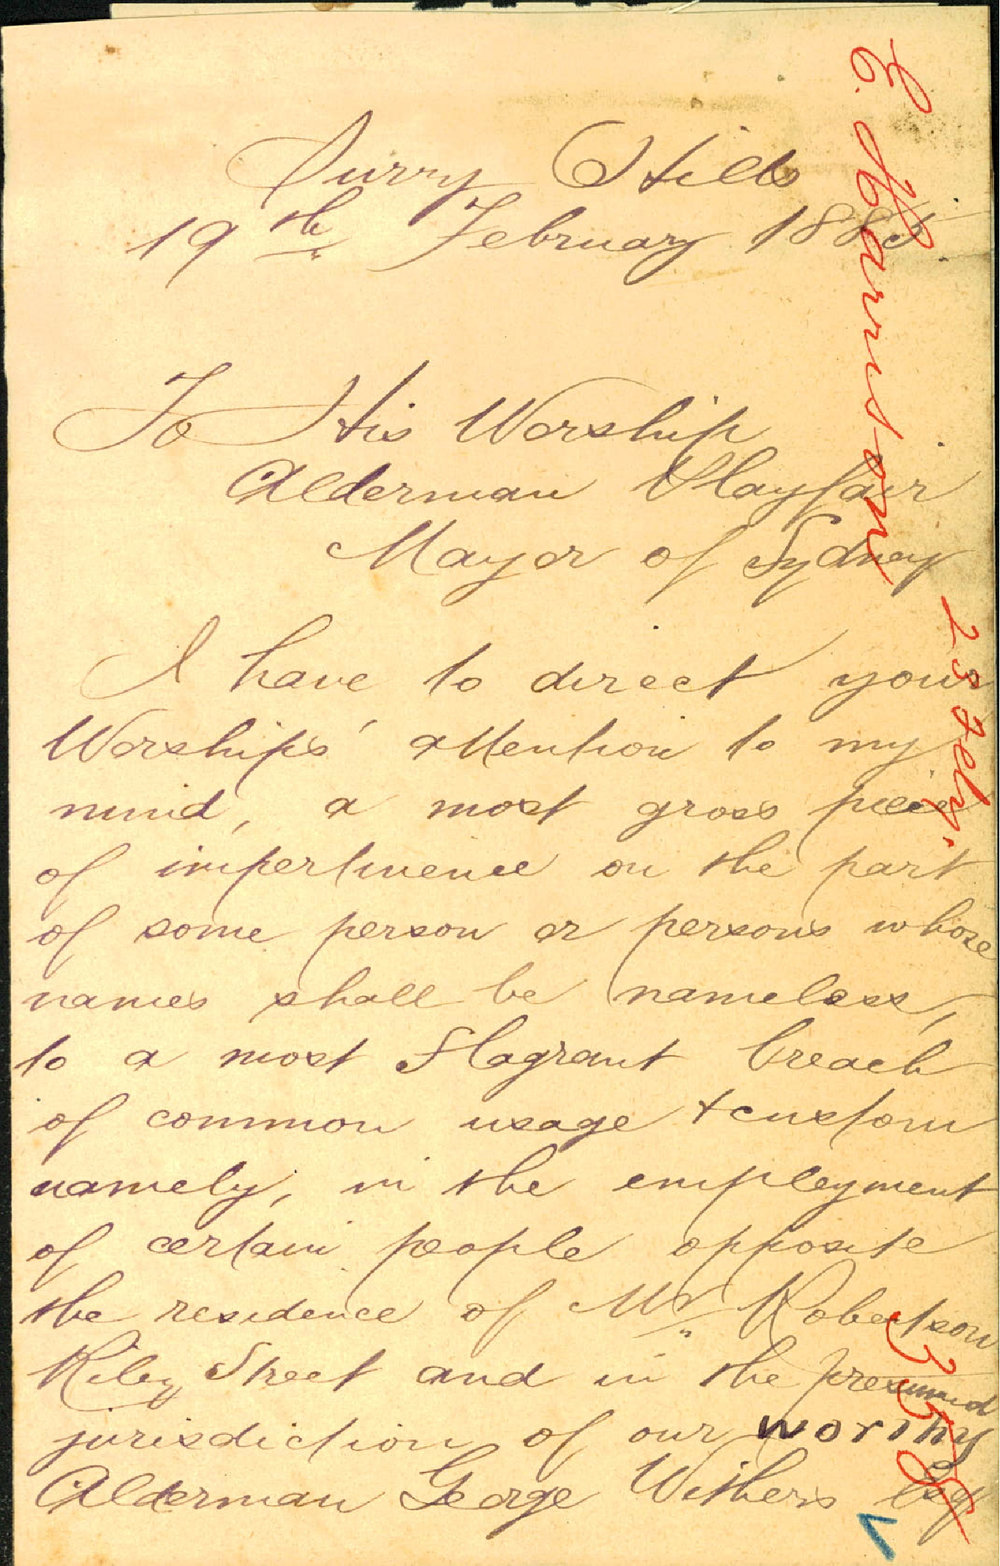 Surry Hills
19th February 1885.
To His Worship
Alderman Playfair
Mayor of Sydney
I have to direct your
Worships' attention to my
mind, a most gross piece
of impertinence on the part
of some person or persons whose
names shall be nameless,
to a most flagrant breach
of common usage + custom
namely, in the employment
of certain people opposite
the residence of Mr. Robertson
Riley Street and in the presumed
jurisdiction of our worthy
Alderman George Withers Esq
E. Harrison
23 Feby.